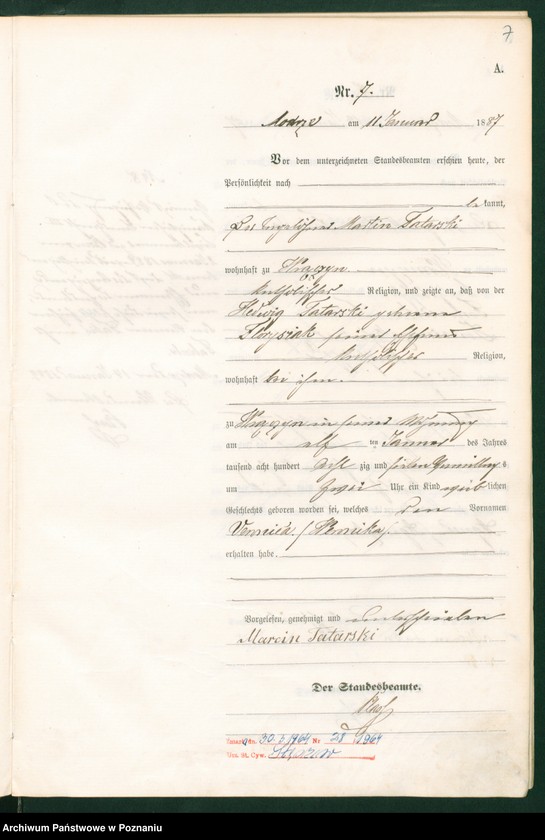 7
A.
Nr. 7.
Modrze am 11 Januar 1887
Vor dem unterzeichneten Standesbeamten erschien heute, der
Persönlichkeit nach
be kannt,
Martin Tatarski
wohnhaft zu
katholischer Religion, und zeigte an, daß von der
Hedwig Tatarski geborene
seiner Ehefrau
katholischer Religion,
wohnhaft bei ihm.
zu in seiner Wohnung
am elf ten Januar des Jahres
tausend acht hundert acht zig und sieben Vormittags
um zwei Uhr ein Kind weib lichen
Geschlechts geboren worden sei, welches den Vornamen
Veronica /Weronika/.
erhalten habe.
Vorgelesen, genehmigt und unterschrieben
Marcin Tatarski
Der Standesbeamte.
Zmarł dn. 30.6 1964 Nr 28 / 1964
Urz. St. Cyw.
Archiwum Państwowe w Poznaniu